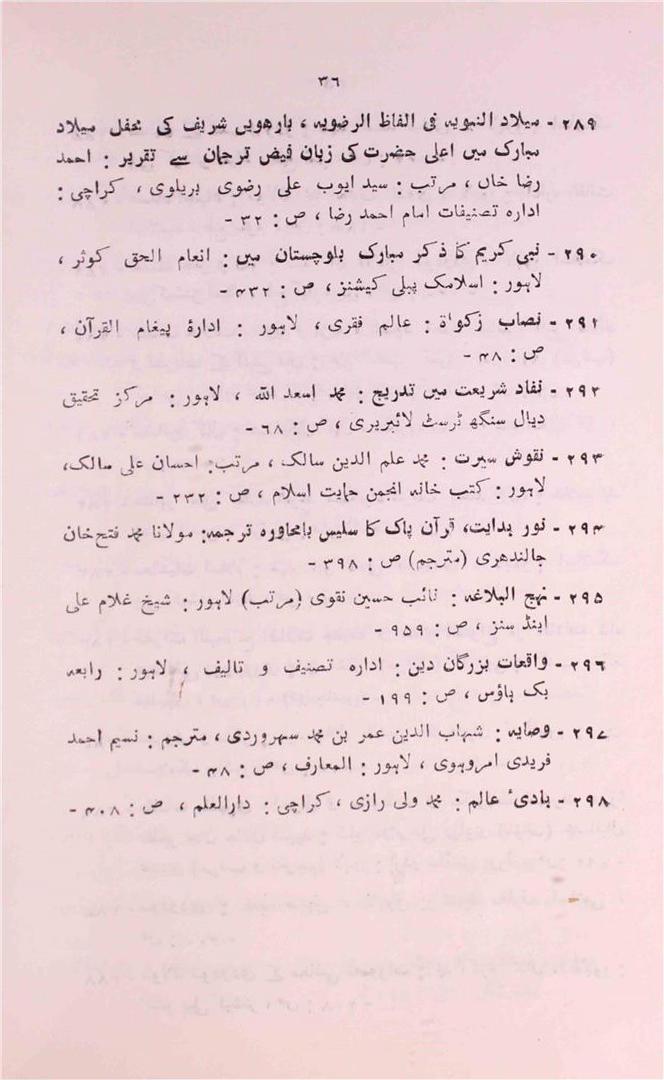 ۳۶
۲۸۹ - میلاد النبویہ فی الفاظ الرضویہ ، بارھویں شریف کی محفل میلاد
مبارک میں اعلیٰ حضرت کی زبان فیض ترجمان سے تقریر : احمد
رضا خاں ، مرتب : سید ایوب علی رضوی بریلوی ، کراچی :
ادارہ تصنیفات امام احمد رضا ، ص : ۳۲ -
۲۹۰ - نبی کریم کا ذکر مبارک بلوچستان میں : انعام الحق کوثر ،
لاہور : اسلامک پبلی کیشنز ، ص : ۴۳۲ -
۲۹۱ - نصاب زکوٰة : عالم فقری ، لاہور : ادارۂ پیغام القرآن ،
ص : ۴۸ -
۲۹۲ - نفاد شریعت میں تدریج : محمد اسعد اللہ ، لاہور : مرکز تحقیق
دیال سنگھ ٹرسٹ لائبریری ، ص : ۶۸ -
۲۹۳ - نقوش سیرت : محمد علم الدین سالک ، مرتب : احسان علی سالک،
لاہور : کتب خانہ انجمن حمایت اسلام ، ص : ۲۳۲ -
۲۹۴ - نور ہدایت، قرآن پاک کا سلیس بامحاورہ ترجمہ: مولانا محمد فتح خان
جالندھری (مترجم) ص : ۳۹۸ -
۲۹۵ - نہج البلاغہ : نائب حسین نقوی (مرتب) لاہور : شیخ غلام علی
اینڈ سنز ، ص : ۹۵۹ -
۲۹۶ - واقعات بزرگان دین : ادارہ تصنیف و تالیف ، لاہور : رابعہ
بک ہاؤس ، ص : ۱۹۹ -
۲۹۷ - وصایہ : شہاب الدین عمر بن محمد سہروردی ، مترجم : نسیم احمد
فریدی امروہوی ، لاہور : المعارف ، ص : ۴۸ -
۲۹۸ - ہادئ عالم : محمد ولی رازی ، کراچی : دارالعلم ، ص : ۴۰۸ -